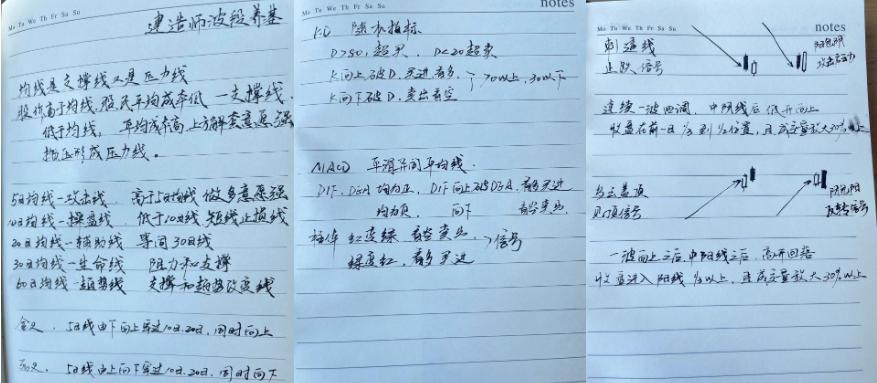 Mo Tu We Th Fr Sa Su
建造师波段养基
均线是支撑线又是压力线
股价高于均线,股民平均成本低 — 支撑线.
低于均线, 平均成本高上方解套意愿强
抛压形成压力线。
5日均线—攻击线 高于5日均线 做多意愿强
10日均线—操盘线 低于10日线 短线止损线
20日均线—辅助线 等同30日线
30日均线—生命线 阻力和支撑
60日均线—趋势线 支撑和趋势改变线
金叉. 5日线由下向上穿过10日.20日,同时向上
死叉. 5日线由上向下穿过10日.20日,同时向下
notes
Mo Tu We Th Fr Sa Su
KD 随机指标
D>80,超买. D<20超卖
K向上破D,买进看多. >70以上,30以下
K向下破D,卖出看空
MACD 平滑异同平均线.
DIF、DEA 均为正, DIF向上破DEA,看多买进
均为负, 向下 看空卖出.
柱体 红变绿 看空卖出 >信号
绿变红,看多买进
notes
Mo Tu We Th Fr Sa Su
刺透线
止跌信号
阳包阴
连续一波回调, 中阴线后 低开向上
收盘在前一日 位置,且成交量放大30%以上
乌云盖顶
见顶信号
阴包阳
反转信号
一波向上之后,中阳线之后,高开回落
收盘进入阳线 以上,且成交量放大30%以上